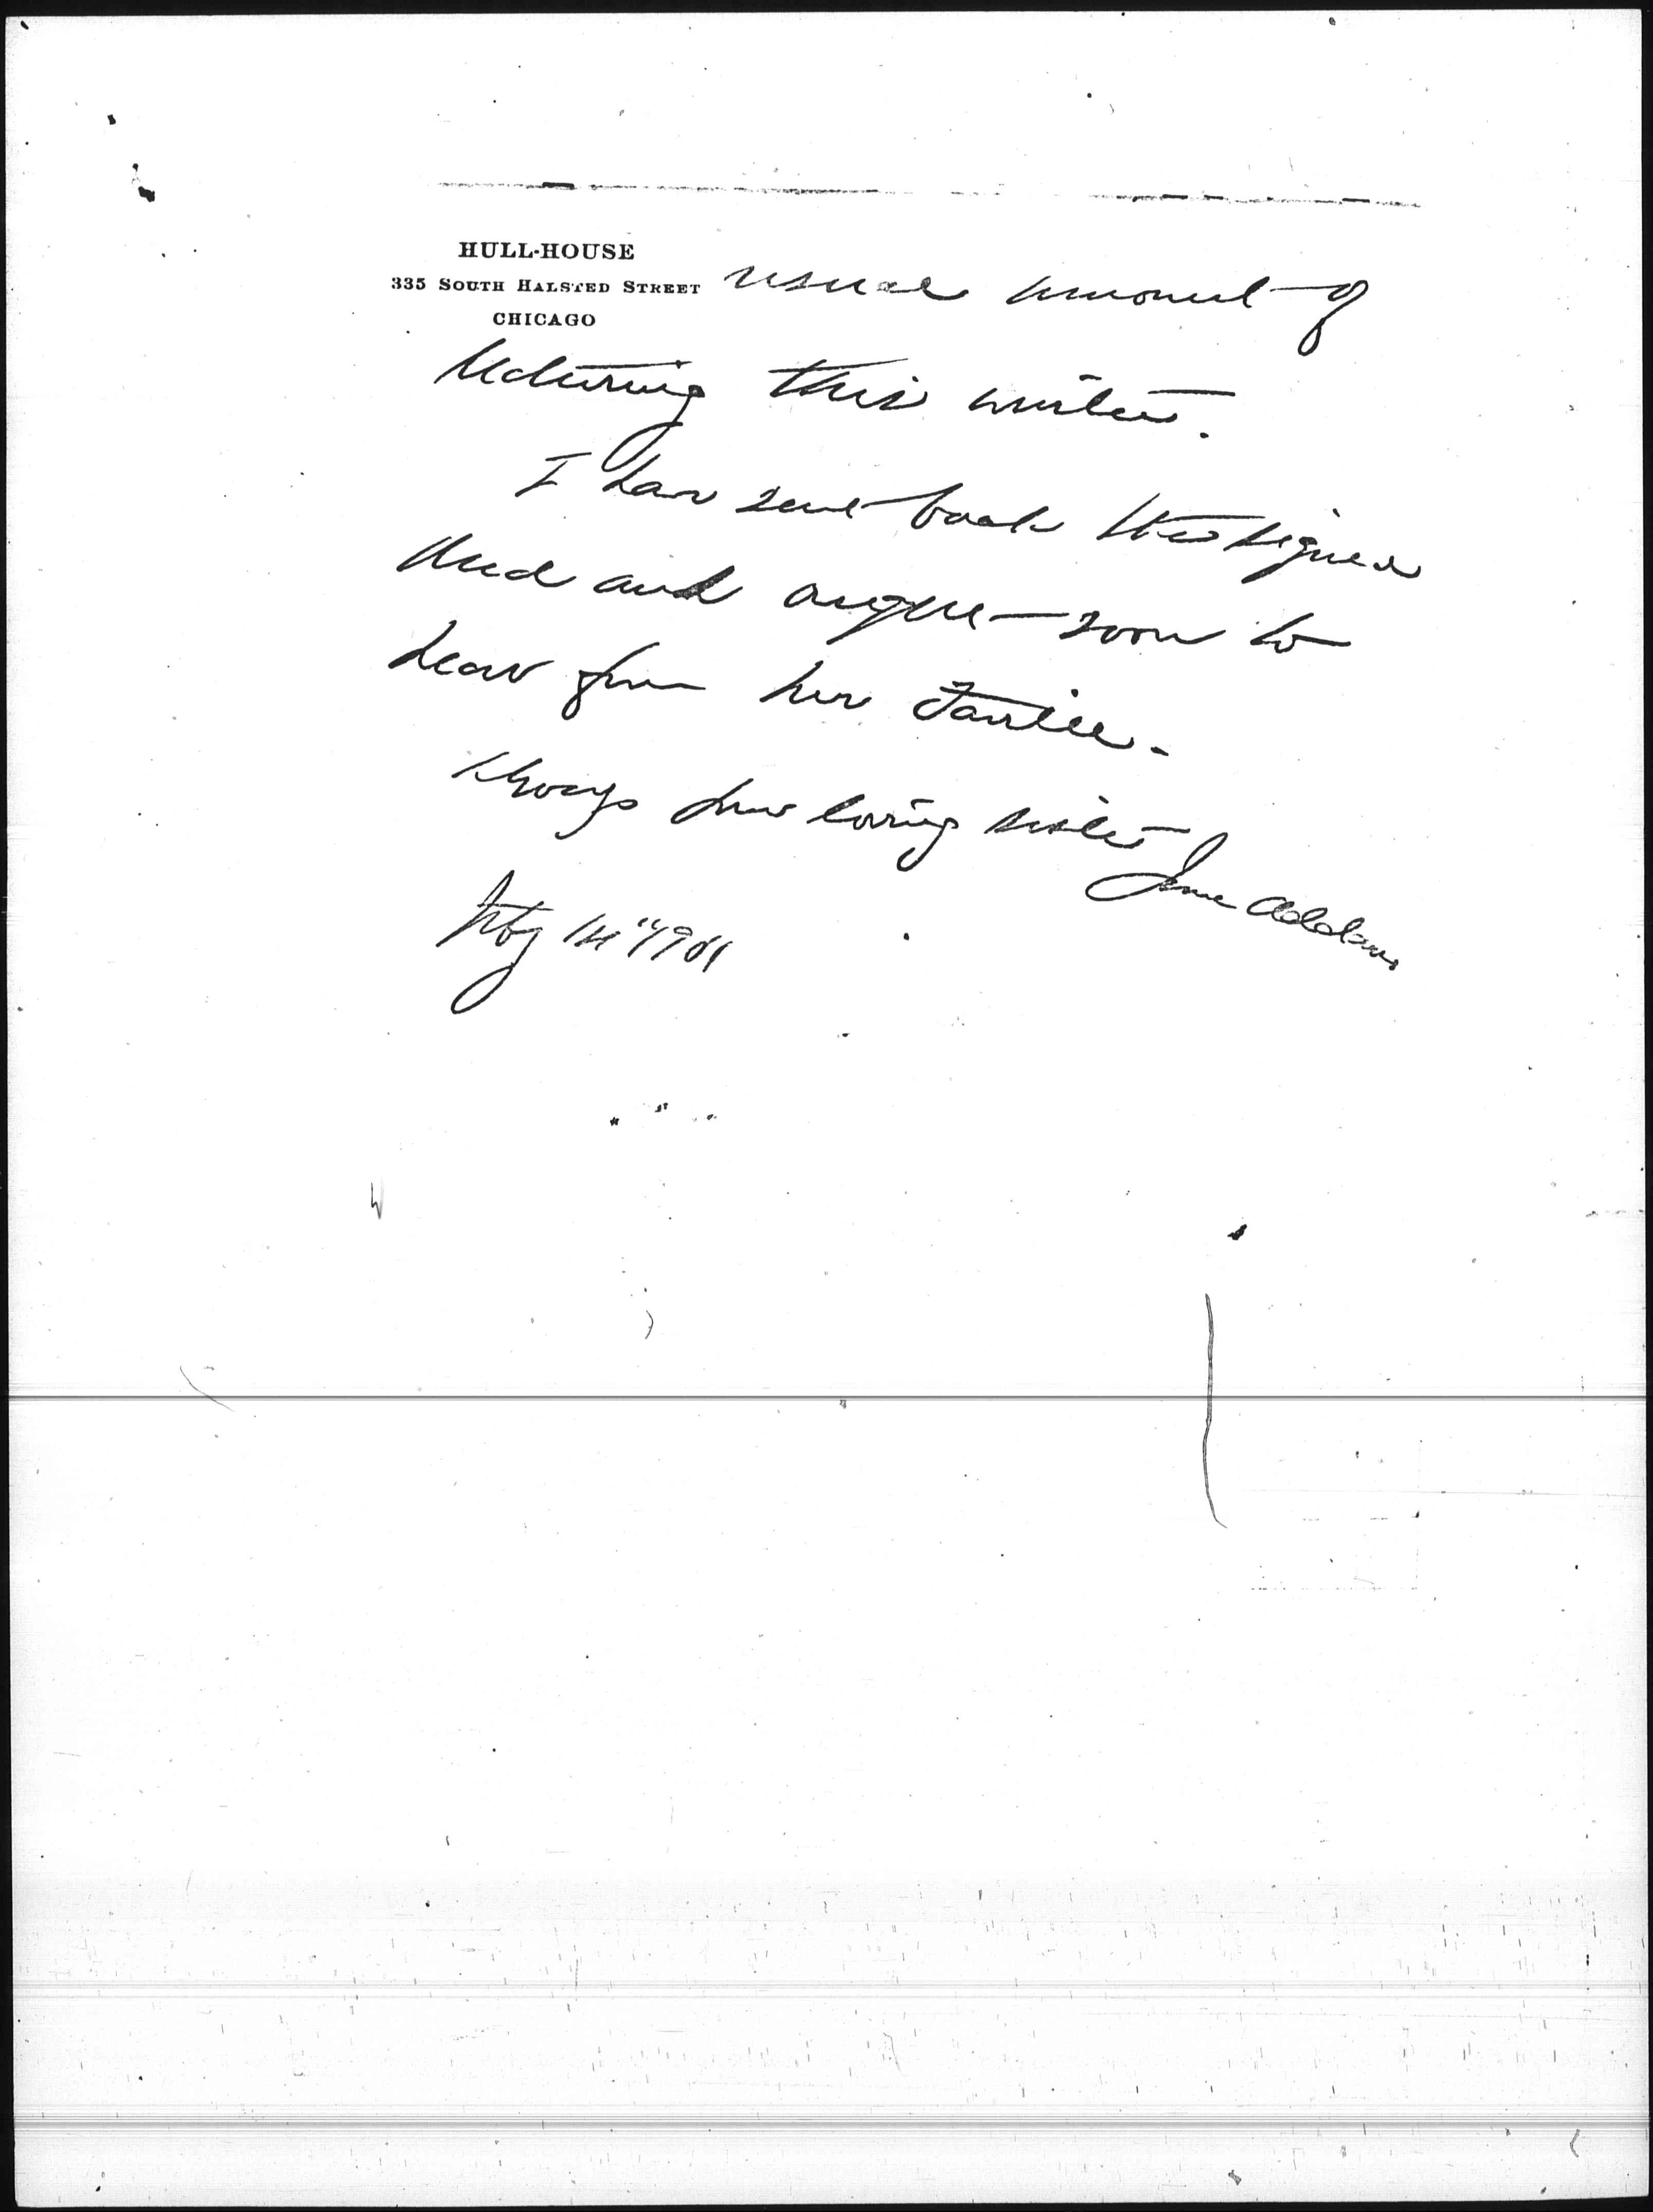 HULL-HOUSE
335 SOUTH HALSTED STREET
CHICAGO
usual amount of
lecturing this winter.
I have sent back the signed
deed and expect soon to
hear from her
Always your loving sister
Jane Addams
14" 1901